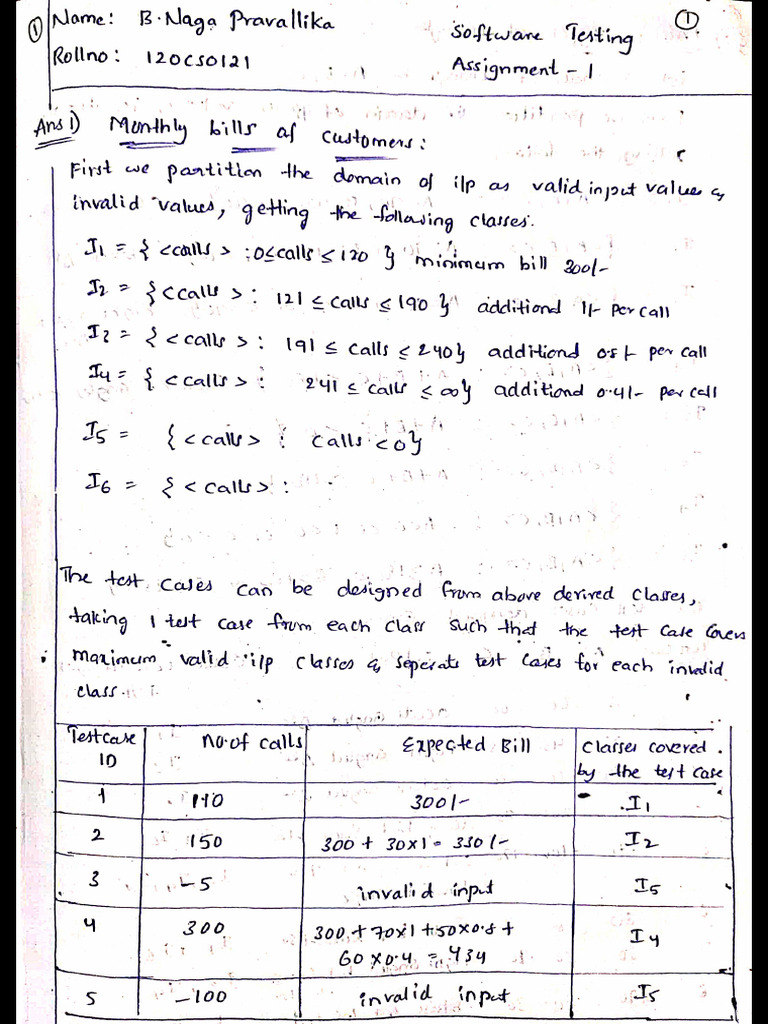 ① Name: B. Naga Pravallika
Rollno: 120CS0121
Software Testing
Assignment - 1
①
Ans 1) Monthly bills of customers:
First we partition the domain of i/p as valid input values &
invalid values, getting the following classes.
I1 = { <calls> : 0≤calls ≤ 120 } minimum bill 300/-
I2 = { <calls> : 121 ≤ calls ≤ 190 } additional 1/- per call
I3 = { <calls> : 191 ≤ calls ≤ 240} additiond 0.8/- per call
I4 = { <calls> : 241 ≤ calls ≤ ∞} additiond 0.4/- per call
I5 = { <calls> : calls <0}
I6 = { <calls> :
The test cases can be designed from above derived classes,
taking 1 test case from each class such that the test case covers
maximum valid i/p classes & seperate test cases for each invalid
class.
Testcase ID | No. of calls | Expected Bill | Classes covered by the test case
1 | 110 | 300/- | I1
2 | 150 | 300 + 30x1 = 330/- | I2
3 | -5 | invalid input | I5
4 | 300 | 300 + 70x1 + 50x0.8 +
60 x 0.4 = 434 | I4
5 | -100 | invalid input | I5